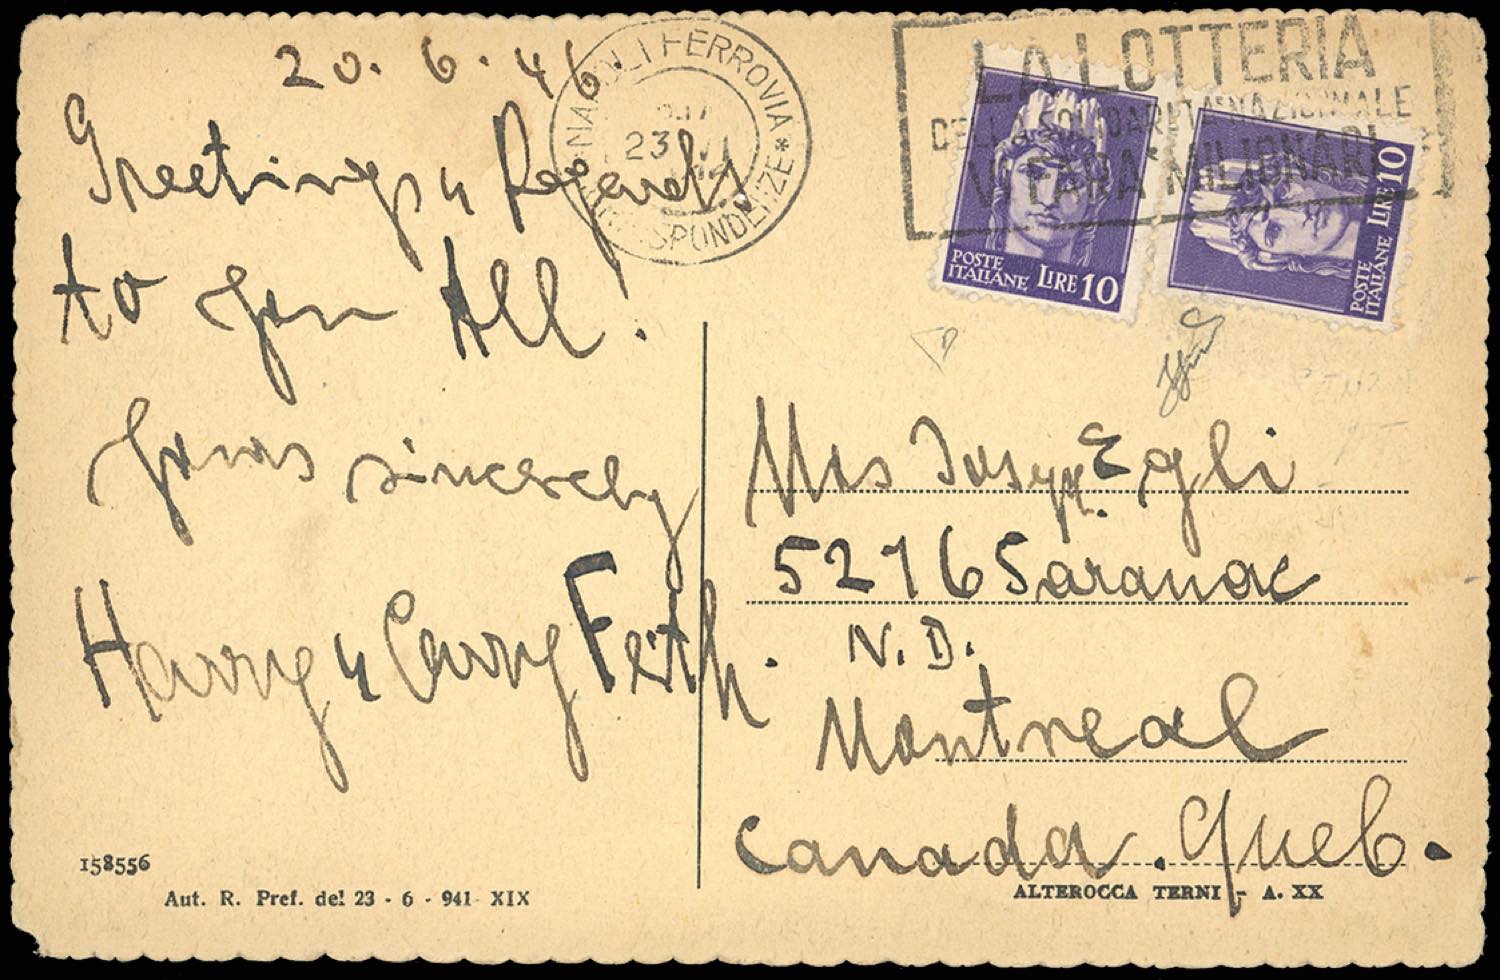 20. 6. 46.
Greetings & Regards
to you All!
Yours sincerely
Harry & Carry Feith.
NAPOLI FERROVIA
23 VI
CORRISPONDENZE
LA LOTTERIA
DELLA SOLIDARIETA NAZIONALE
VI FARA' MILIONARI
POSTE
ITALIANE LIRE 10
POSTE
ITALIANE LIRE 10
Mrs Egli
5276 Saranac
N. D.
Montreal
Canada. Queb.
158556
Aut. R. Pref. del 23 - 6 - 941 XIX
ALTEROCCA TERNI - A. XX